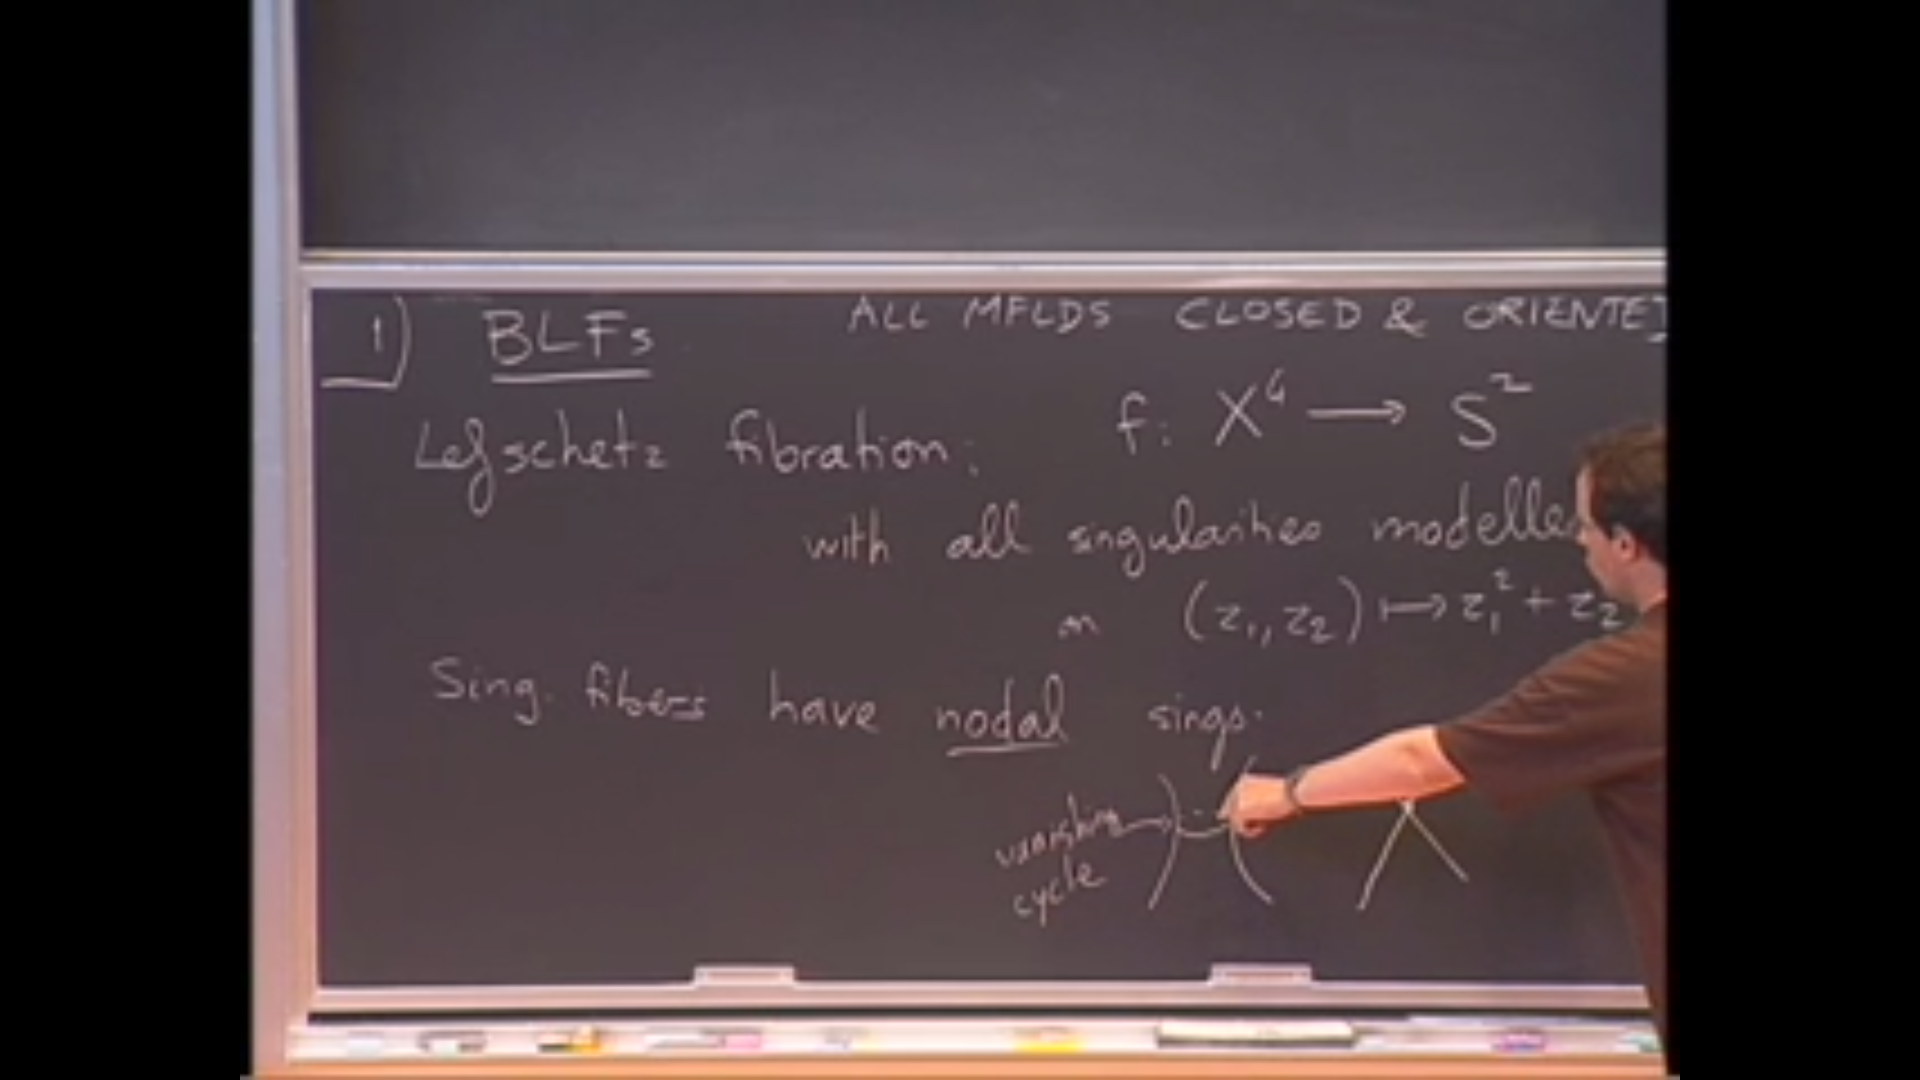 1) BLFs ALL MFLDS CLOSED & ORIENTED
Lefschetz fibration: f: X⁴ ⟶ S²
with all singularities modelle
on (z₁, z₂) ⟼ z₁² + z₂
Sing. fibers have nodal sings.
vanishing
cycle